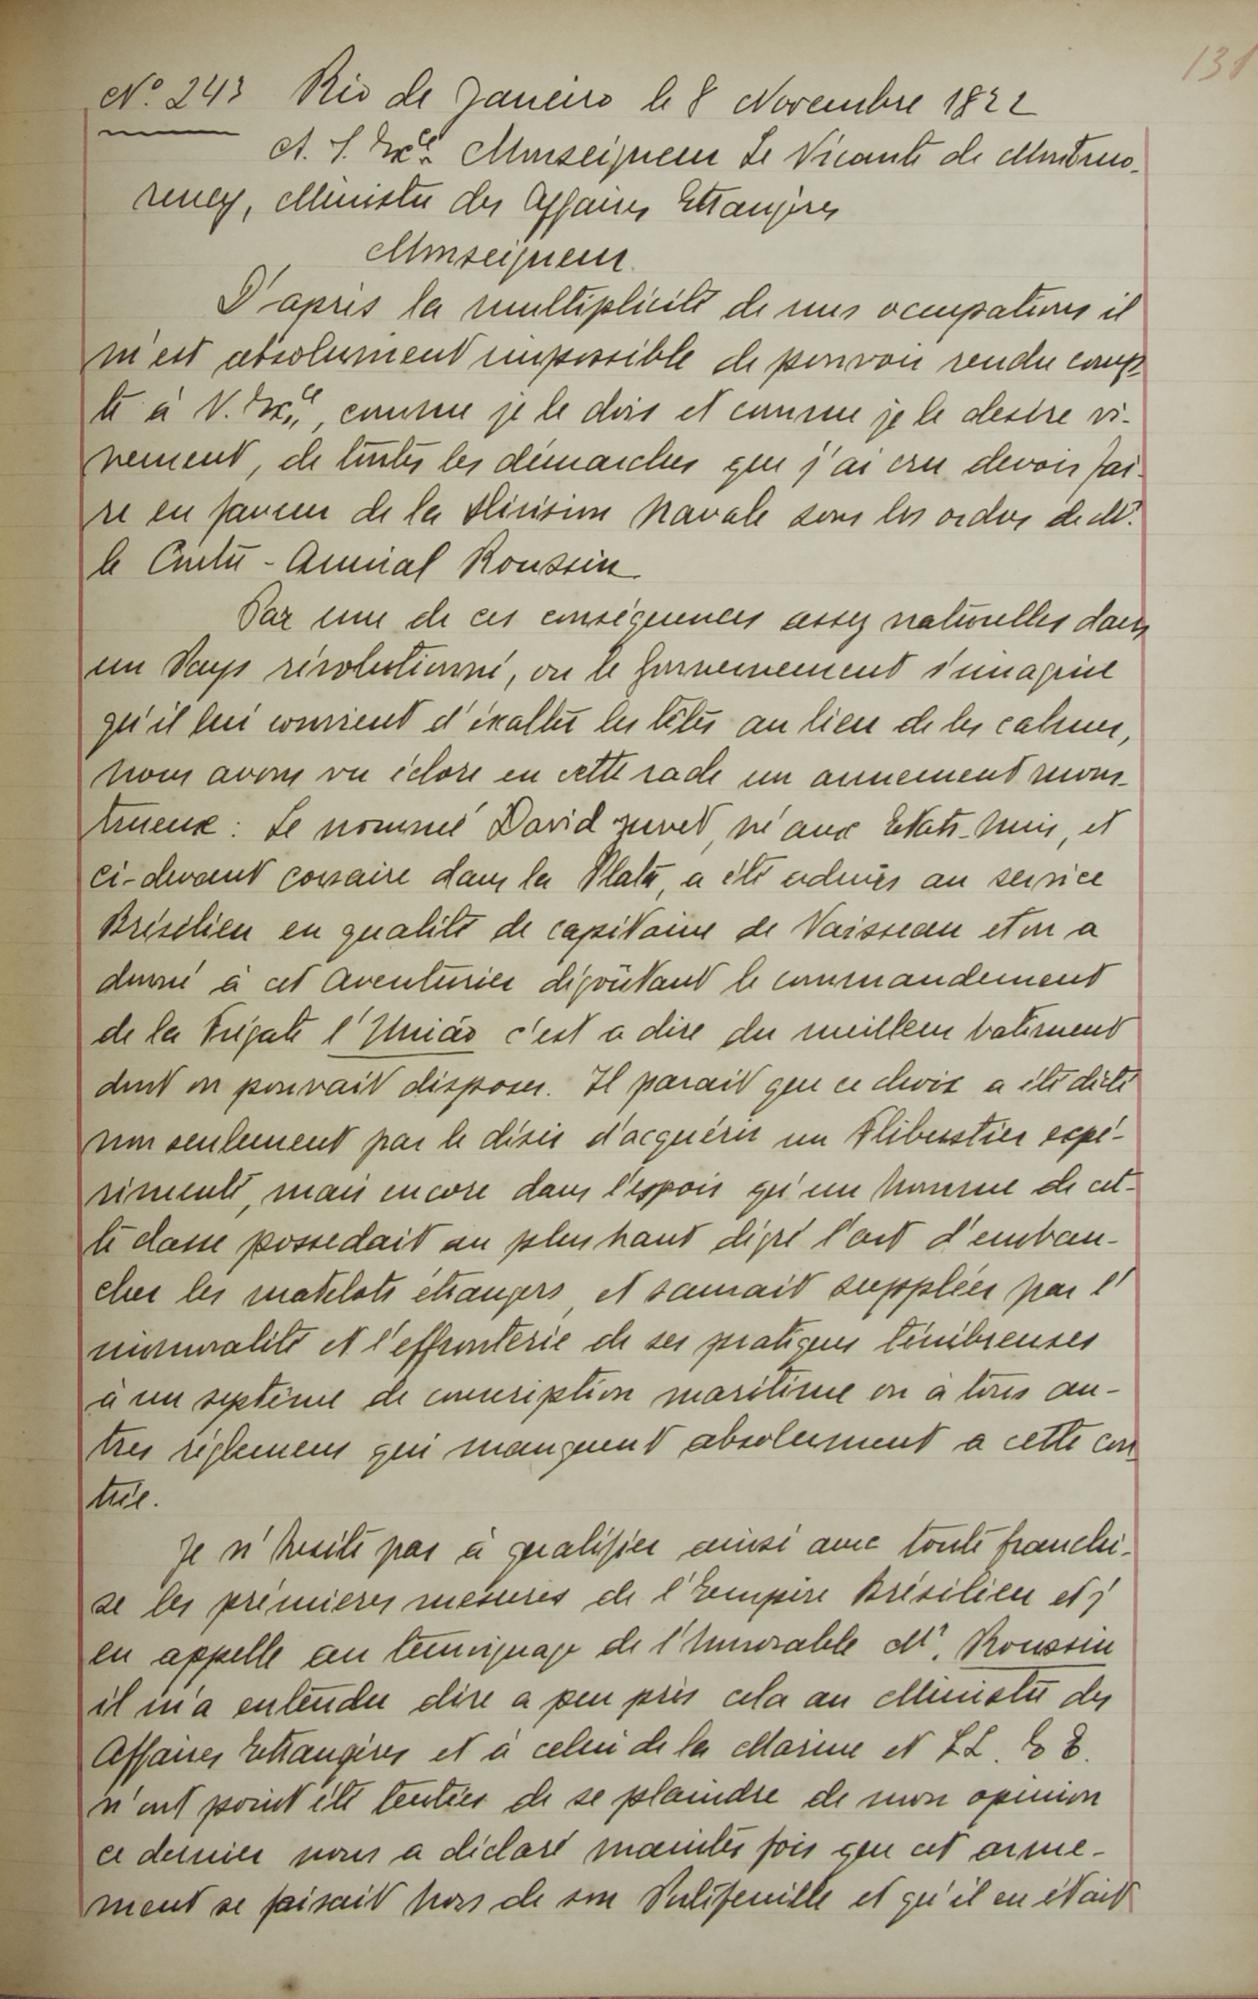 131
Nº. 243 Rio de Janeiro le 8 Novembre 1822
A. S. Exce. Monseigneur Le Vicomte de Montmo-
rency, Ministre des Affaires Etrangères
Monseigneur.
D'après la multiplicité de mes occupations il
m'est absolument impossible de pouvoir rendre comp-
te à V. Exce, comme je le dois et comme je le desire vi-
vement, de toutes les démarches que j'ai cru devoir fai-
re en faveur de la Division Navale sous les ordres de Mr.
le Contre-Amiral Roussin.
Par une de ces conséquences assez naturelles dans
un Pays révolutionné, ou le Gouvernement s'imagine
qu'il lui convient d'éxalter les têtes au lieu de les calmer,
nous avons vu éclore en cette rade un armement mons-
trueux: Le nommé David Juvet, né aux Etats-Unis, et
ci-devant corsaire dans la Plata, a été admis au service
Brésilien en qualité de capitaine de Vaisseau et on a
donné à cet aventurier dégoûtant le commandement
de la Frégate l'União c'est a dire du meilleur batiment
dont on pouvait disposer. Il parait que ce choix a été dicté
non seulement par le désir d'acquérir un Flibustier expé-
rimenté, mais encore dans l'espoir qu'un homme de cet-
te classe possedait au plus haut dégré l'art d'embau-
cher les matelots étrangers, et saurait suppléer par l'
immoralité et l'effronterie de ses pratiques ténébreuses
à un septème de conscription maritime ou à tous au-
tres réglemens qui manquent absolument a cette con-
trée.
Je n'hesite pas à qualifier ainsi avec toute franchi-
se les prémieres mesures de l'Empire Brésilien et j'
en appelle au temoignage de l'honorable Mr. Roussin
il m'a entendu dire a peu près cela au Ministre des
Affaires Etrangères et à celui de la Marine et LL. EE.
n'ont point été tentées de se plaindre de mon opinion
ce dernier nous a déclaré maintes fois que cet arme-
ment se faisait hors de son Portefeuille et qu'il en était